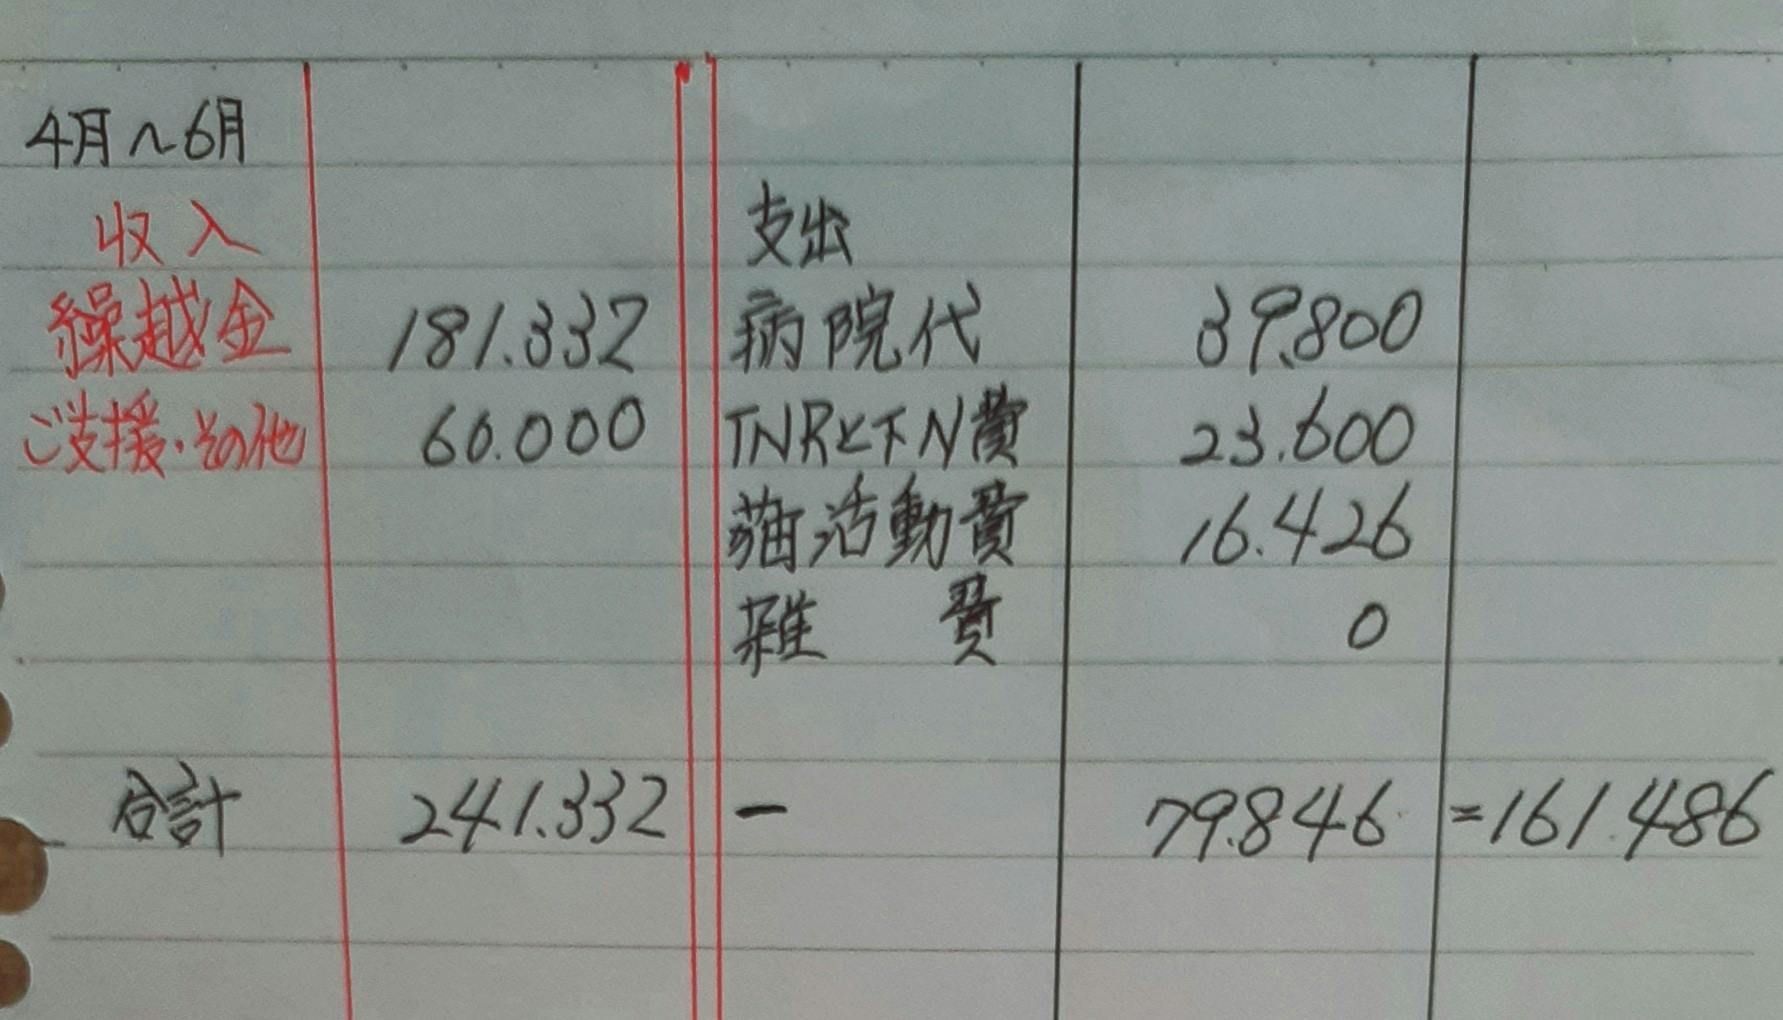 4月~6月
収入 支出
繰越金 181.332 病院代 39.800
ご支援・その他 60.000 TNRと下N費 23.600
猫活動費 16.426
雑 費 0
合計 241.332 - 79.846 =161.486